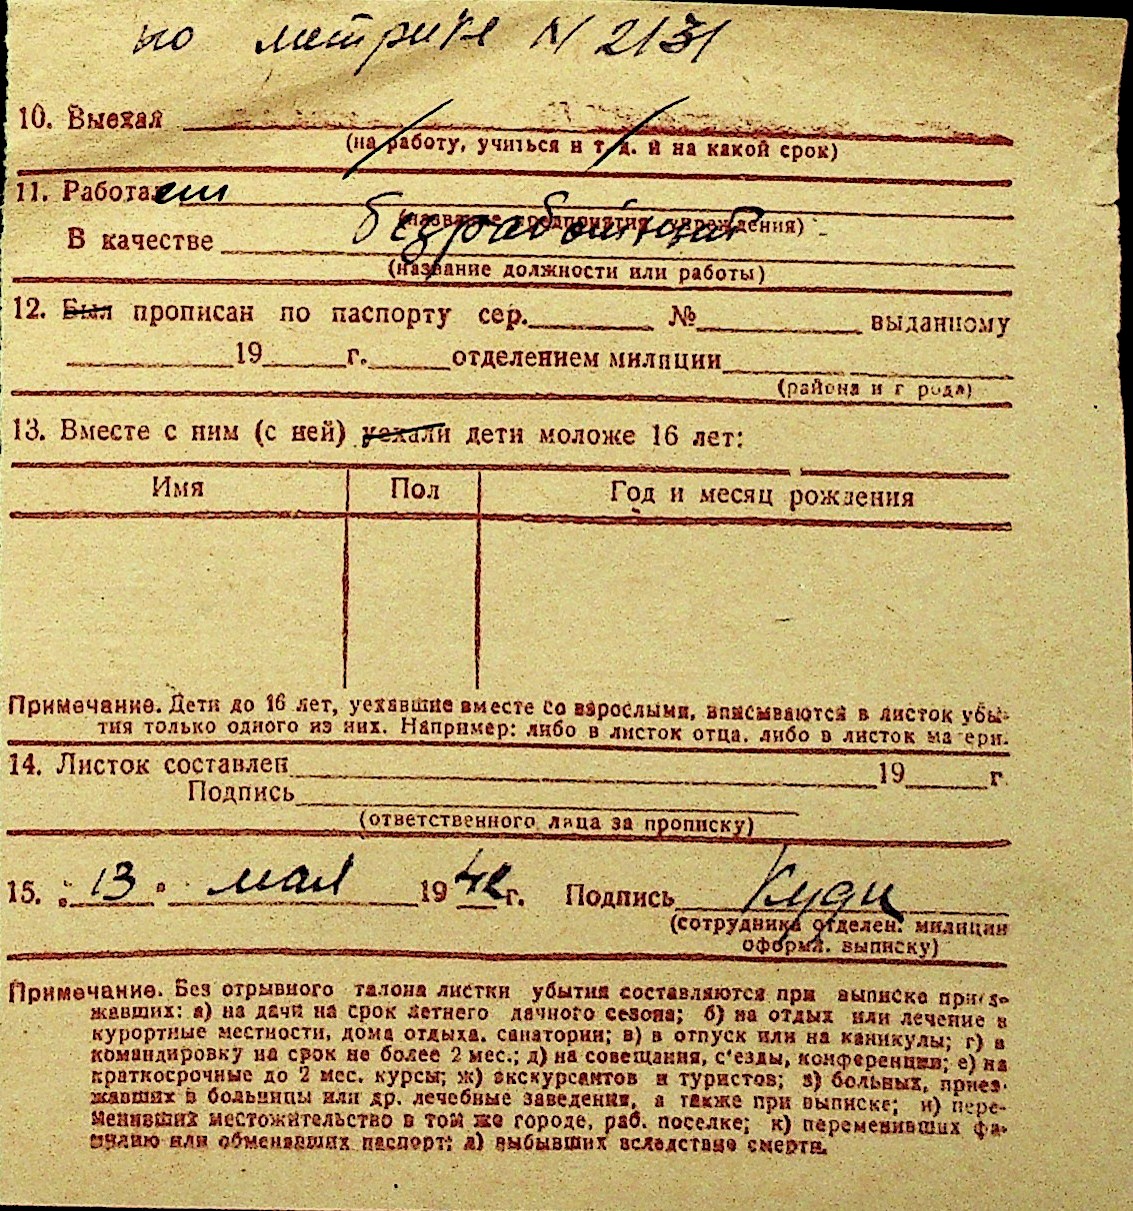 по метрике N 2131
10. Выехал
(на работу, учиться и т. д. и на какой срок)
11. Работает
(название предприятия, учреждения)
В качестве безработный
(название должности или работы)
12. Был прописан по паспорту сер. № выданному
19 г. отделением милиции
(района и города)
13. Вместе с ним (с ней) уехали дети моложе 16 лет:
Имя Пол Год и месяц рождения
Примечание. Дети до 16 лет, уехавшие вместе со взрослыми, вписываются в листок убы-
тия только одного из них. Например: либо в листок отца, либо в листок матери.
14. Листок составлен 19 г.
Подпись
(ответственного лица за прописку)
15. 13 мая 1942 г. Подпись
(сотрудника отделен. милиции
оформл. выписку)
Примечание. Без отрывного талона листки убытия составляются при выписке приез-
жавших: а) на дачи на срок летнего дачного сезона; б) на отдых или лечение в
курортные местности, дома отдыха, санатории; в) в отпуск или на каникулы; г) в
командировку на срок не более 2 мес.; д) на совещания, с'езды, конференции; е) на
краткосрочные до 2 мес. курсы; ж) экскурсантов и туристов; з) больных, приез-
жавших в больницы или др. лечебные заведения, а также при выписке; и) пере-
менивших местожительство в том же городе, раб. поселке; к) переменивших фа-
милию или обменявших паспорт; л) выбывших вследствие смерти.